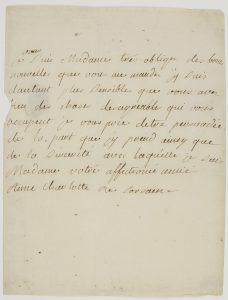 vous
je suis Madame tres obligée des bonne
nouvelle que vou me mandé jy suis
dautant plus sensible que vous avez
peu de chose de agreable qui vous
ocupent je vous prie detre persuadée
de la part que jy prend ainsy que
de la sincerité avec laquelle je suis
Madame votre affectionée amie
Anne Charlotte de Loraine